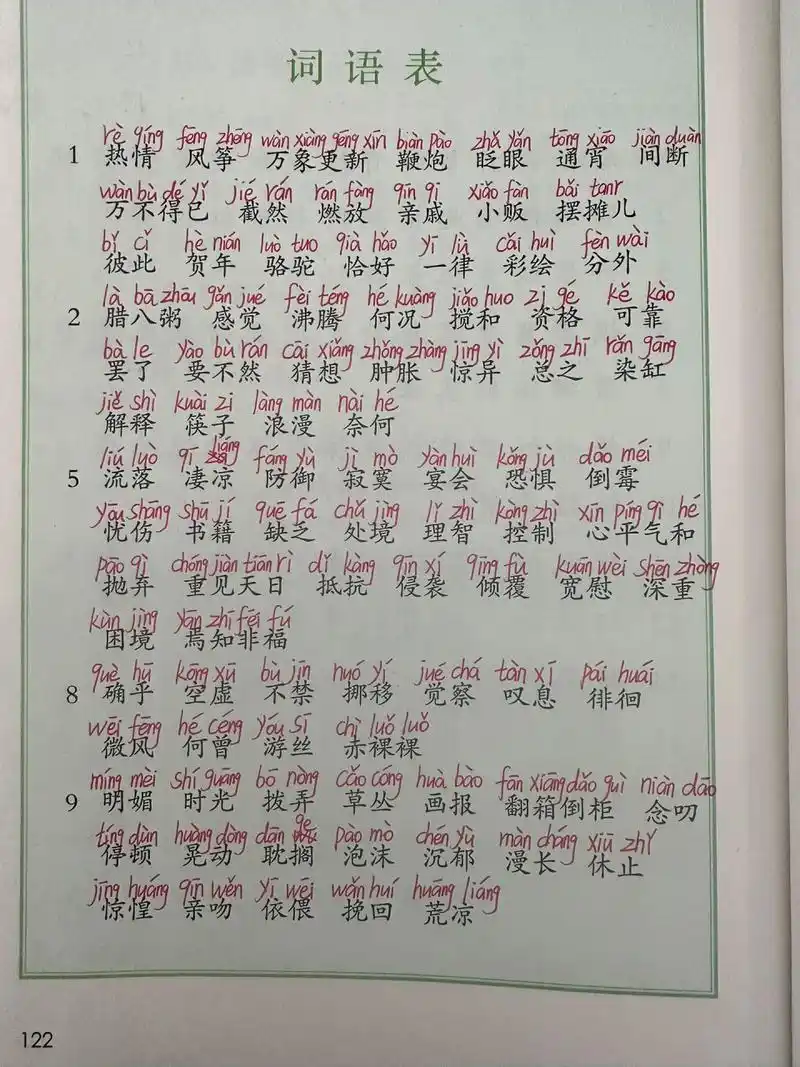 词语表
rè qíng fēng zhēng wàn xiàng gēng xīn biàn pào zhǎ yǎn tōng xiāo jiàn duàn
1 热情 风筝 万象更新 鞭炮 眨眼 通宵 间断
wàn bù dé yǐ jié rán rán fàng qīn qi xiǎo fàn bǎi tanr
万不得已 截然 燃放 亲戚 小贩 摆摊儿
bǐ cǐ hè nián luò tuo qià hǎo yī lǜ cǎi huì fèn wài
彼此 贺年 骆驼 恰好 一律 彩绘 分外
là bā zhōu gǎn jué fèi téng hé kuàng jiǎo huo zī gé kě kào
2 腊八粥 感觉 沸腾 何况 搅和 资格 可靠
bà le yào bù rán cāi xiǎng zhǒng zhàng jīng yì zǒng zhī rǎn gāng
罢了 要不然 猜想 肿胀 惊异 总之 染缸
jiě shì kuài zi làng màn nài hé
解释 筷子 浪漫 奈何
liú luò qī liáng fáng yù jì mò yàn huì kǒng jù dǎo méi
5 流落 凄凉 防御 寂寞 宴会 恐惧 倒霉
yōu shāng shū jí quē fá chǔ jìng lǐ zhì kòng zhì xīn píng qì hé
忧伤 书籍 缺乏 处境 理智 控制 心平气和
pāo qì chóng jiàn tiān rì dǐ kàng qīn xí qīng fù kuān wèi shēn zhòng
抛弃 重见天日 抵抗 侵袭 倾覆 宽慰 深重
kùn jìng yān zhī fēi fú
困境 焉知非福
què hū kōng xū bù jīn nuó yí jué chá tàn xī pái huái
8 确乎 空虚 不禁 挪移 觉察 叹息 徘徊
wēi fēng hé céng yóu sī chì luǒ luǒ
微风 何曾 游丝 赤裸裸
míng mèi shí guāng bō nòng cǎo cóng huà bào fān xiāng dǎo guì niàn dāo
9 明媚 时光 拨弄 草丛 画报 翻箱倒柜 念叨
tíng dùn huàng dòng dān ge pào mò chén yù màn cháng xiū zhǐ
停顿 晃动 耽搁 泡沫 沉郁 漫长 休止
jīng huáng qīn wěn yī wēi wǎn huí huāng liáng
惊惶 亲吻 依偎 挽回 荒凉
122